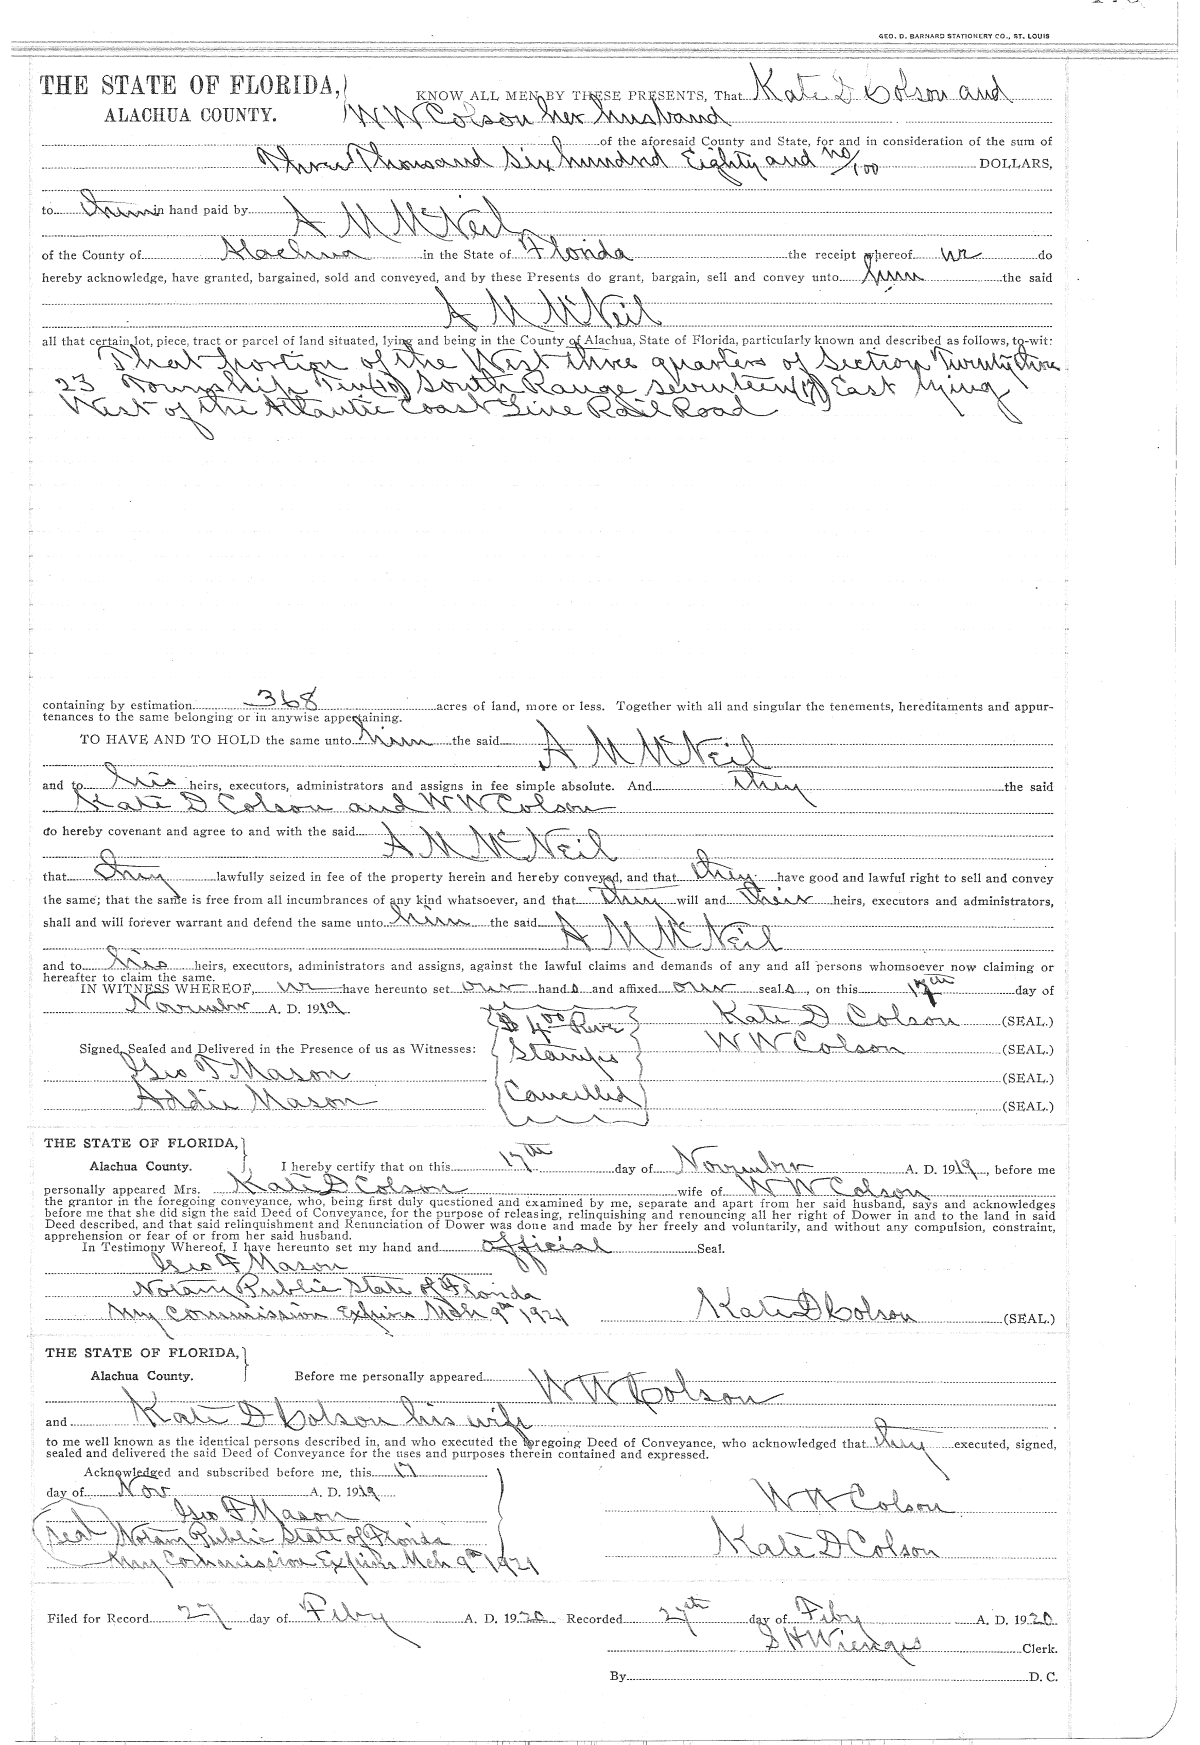 GEO. D. BARNARD STATIONERY CO., ST. LOUIS
THE STATE OF FLORIDA,
ALACHUA COUNTY.
KNOW ALL MEN BY THESE PRESENTS, That Kate D Colson and
W W Colson her husband
of the aforesaid County and State, for and in consideration of the sum of
Three Thousand Six hundred Eighty and no/100 DOLLARS,
to them in hand paid by
A M McNeil
of the County of Alachua in the State of Florida the receipt whereof we do
hereby acknowledge, have granted, bargained, sold and conveyed, and by these Presents do grant, bargain, sell and convey unto him the said
A M McNeil
all that certain lot, piece, tract or parcel of land situated, lying and being in the County of Alachua, State of Florida, particularly known and described as follows, to-wit:
That portion of the West three quarters of Section Twenty three
23 Township Ten (10) South Range seventeen (17) East lying
West of the Atlantic Coast Line Rail Road
containing by estimation 368 acres of land, more or less. Together with all and singular the tenements, hereditaments and appur-
tenances to the same belonging or in anywise appertaining.
TO HAVE AND TO HOLD the same unto him the said A M McNeil
and to his heirs, executors, administrators and assigns in fee simple absolute. And they the said
Kate D Colson and W W Colson
do hereby covenant and agree to and with the said A M McNeil
that they lawfully seized in fee of the property herein and hereby conveyed, and that they have good and lawful right to sell and convey
the same; that the same is free from all incumbrances of any kind whatsoever, and that They will and their heirs, executors and administrators,
shall and will forever warrant and defend the same unto him the said A M McNeil
and to his heirs, executors, administrators and assigns, against the lawful claims and demands of any and all persons whomsoever now claiming or
hereafter to claim the same.
IN WITNESS WHEREOF, we have hereunto set our hands and affixed our seals, on this 17th day of
November A. D. 1919
$4.00 Reve Stamps Cancelled
Kate D Colson (SEAL.)
Signed, Sealed and Delivered in the Presence of us as Witnesses:
W W Colson (SEAL.)
Geo F Mason (SEAL.)
Addie Mason (SEAL.)
THE STATE OF FLORIDA,
Alachua County. I hereby certify that on this 17th day of November A. D. 1919, before me
personally appeared Mrs. Kate D Colson wife of W W Colson
the grantor in the foregoing conveyance, who, being first duly questioned and examined by me, separate and apart from her said husband, says and acknowledges
before me that she did sign the said Deed of Conveyance, for the purpose of releasing, relinquishing and renouncing all her right of Dower in and to the land in said
Deed described, and that said relinquishment and Renunciation of Dower was done and made by her freely and voluntarily, and without any compulsion, constraint,
apprehension or fear of or from her said husband.
In Testimony Whereof, I have hereunto set my hand and official Seal.
Geo F Mason
Notary Public State of Florida
My Commission Expires Mch 9th 1921 Kate D Colson (SEAL.)
THE STATE OF FLORIDA,
Alachua County. Before me personally appeared W W Colson
and Kate D Colson his wife
to me well known as the identical persons described in, and who executed the foregoing Deed of Conveyance, who acknowledged that they executed, signed,
sealed and delivered the said Deed of Conveyance for the uses and purposes therein contained and expressed.
Acknowledged and subscribed before me, this 17
day of Nov A. D. 1919
Geo F Mason W W Colson
(Seal) Notary Public State of Florida
My Commission Expires Mch 9th 1921 Kate D Colson
Filed for Record 27 day of Feby A. D. 1920 Recorded 27th day of Feby A. D. 1920
S H Wienges Clerk.
By D. C.